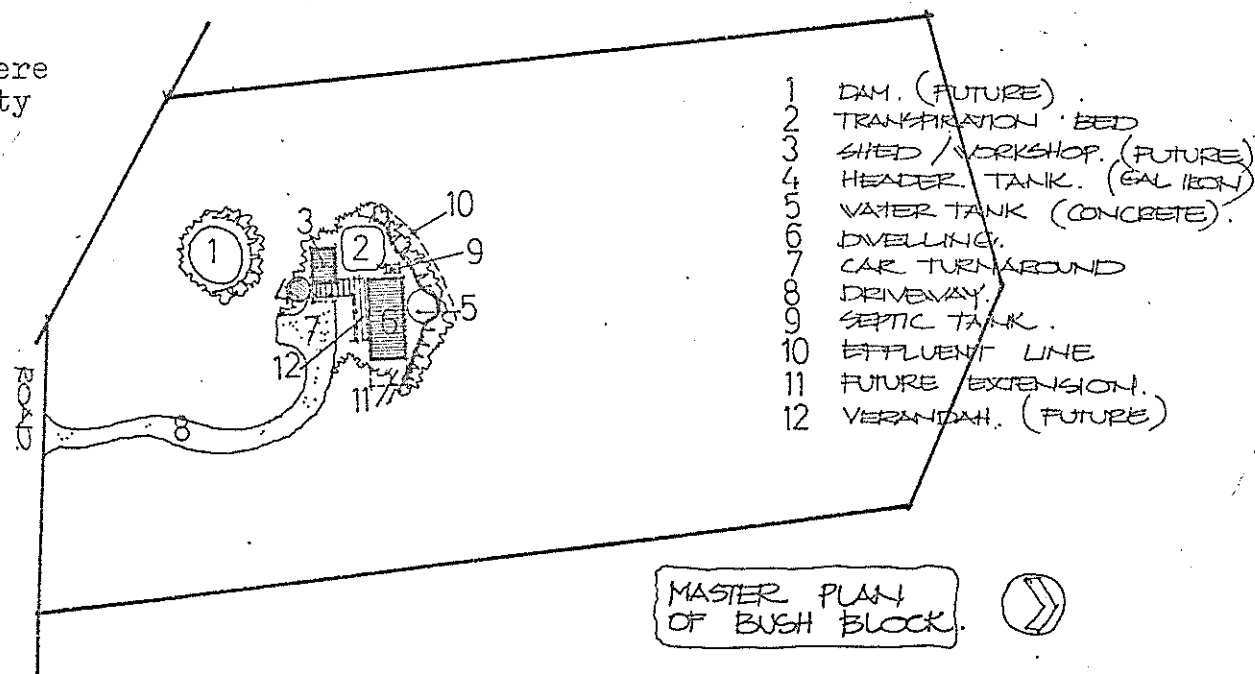 ere
ty
1 DAM. (FUTURE).
2 TRANSPIRATION BED
3 SHED / WORKSHOP. (FUTURE)
4 HEADER. TANK. (GAL IRON)
5 WATER TANK (CONCRETE).
6 DWELLING.
7 CAR TURNAROUND
8 DRIVEWAY.
9 SEPTIC TANK.
10 EFFLUENT LINE
11 FUTURE EXTENSION.
12 VERANDAH. (FUTURE)
10
3
1
2
9
5
6
7
12
11
8
ROAD.
MASTER PLAN
OF BUSH BLOCK.